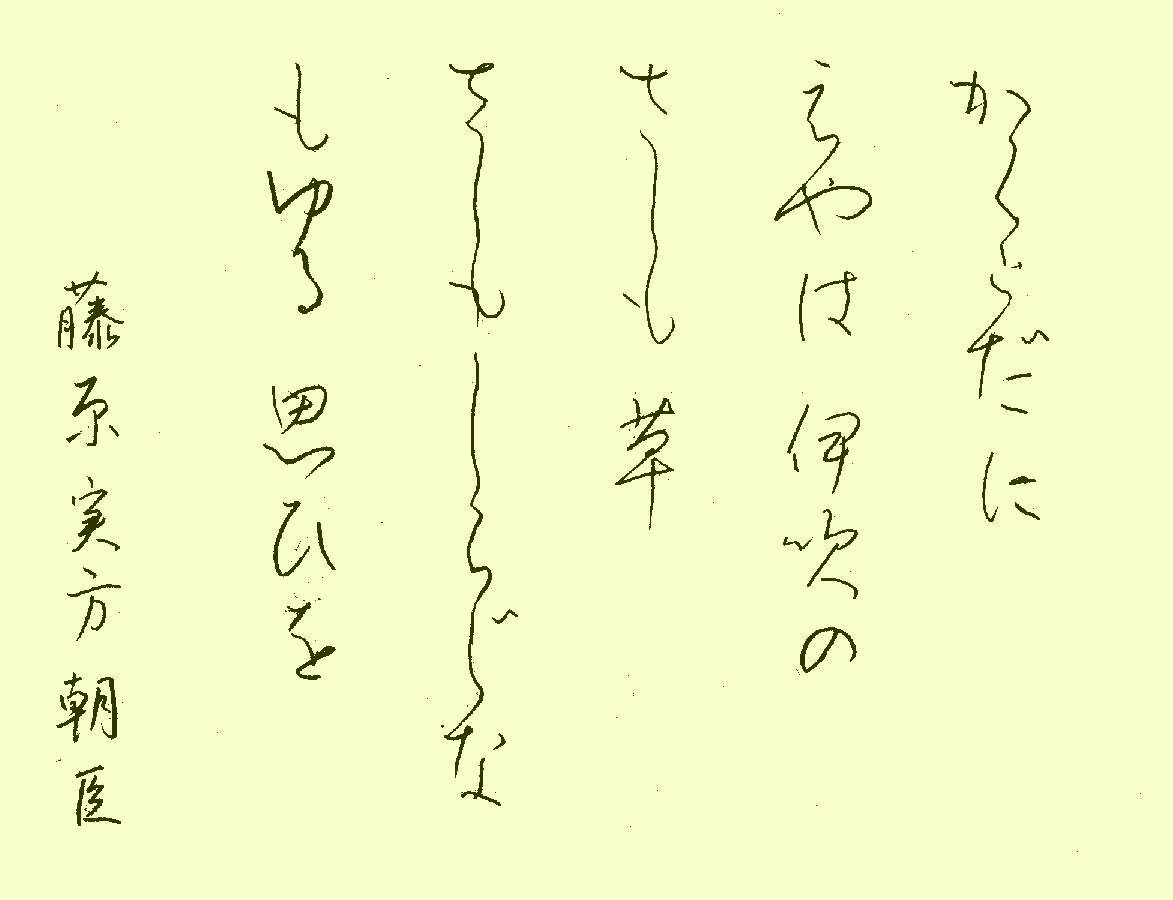 かくとだに
えやは伊吹の
さしも草
さしもしらじな
もゆる思ひを
藤原実方朝臣